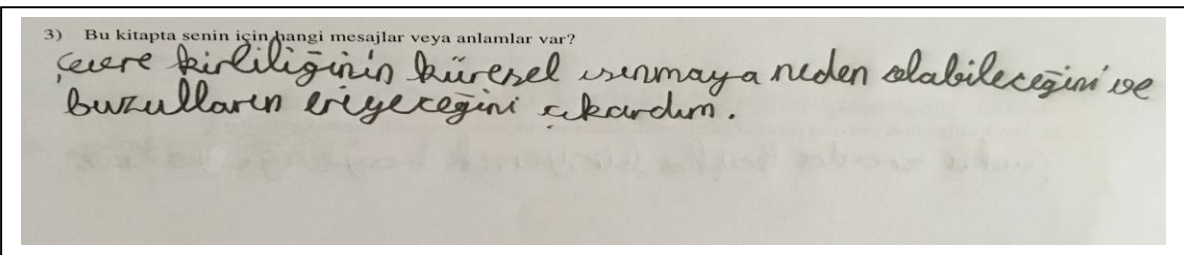 3) Bu kitapta senin için hangi mesajlar veya anlamlar var?
Çevre kirliliğinin küresel ısınmaya neden olabileceğini ve
buzulların eriyeceğini çıkardım.